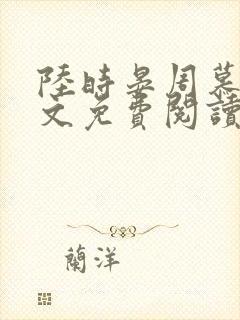 陸時晏周慕
文免費閱讀
蘭洋